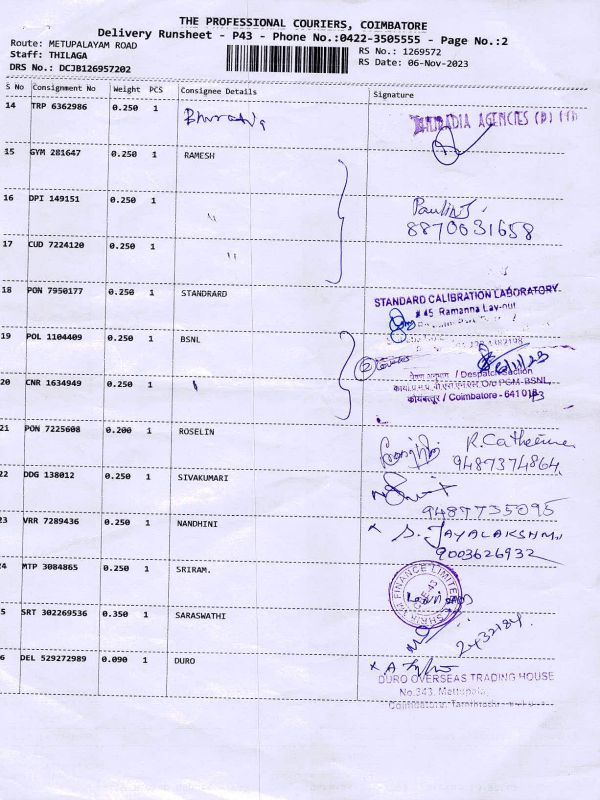 THE PROFESSIONAL COURIERS, COIMBATORE
Delivery Runsheet - P43 - Phone No.:0422-3505555 - Page No.:2
Route: METUPALAYAM ROAD
Staff: THILAGA
DRS No.: DCJB126957202
RS No.: 1269572
RS Date: 06-Nov-2023
S No Consignment No Weight PCS Consignee Details Signature
14 TRP 6362986 0.250 1
AGENCIES (P) LTD
15 GYM 281647 0.250 1 RAMESH
16 DPI 149151 0.250 1 "
8870031658
17 CUD 7224120 0.250 1 "
18 PON 7950177 0.250 1 STANDRARD
STANDARD CALIBRATION LABORATORY
# 45 Ramanna Lay-out
19 POL 1104409 0.250 1 BSNL
6/11/23
/ Despatch Section
O/o PGM-BSNL,
कोयंबत्तूर / Coimbatore - 641 018
20 CNR 1634949 0.250 1
21 PON 7225608 0.200 1 ROSELIN
R. Catherine
9487374864
22 DDG 138012 0.250 1 SIVAKUMARI
9487735095
23 VRR 7289436 0.250 1 NANDHINI
x S. JAYALAKSHMI
9003626932
24 MTP 3084865 0.250 1 SRIRAM.
SHRIRAM FINANCE LIMITED
5 SRT 302269536 0.350 1 SARASWATHI
2432184
6 DEL 529272989 0.090 1 DURO
DURO OVERSEAS TRADING HOUSE
No.343, Mettupala
Coimbatore,